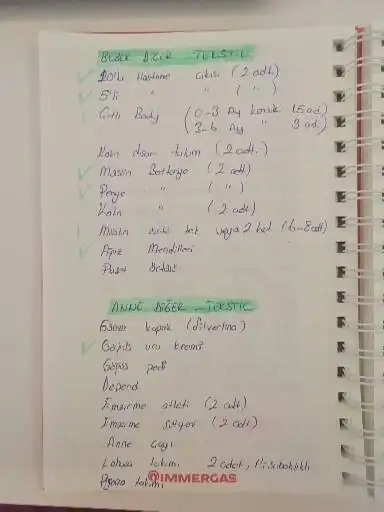 BEBEK DİĞER TEKSTİL
10'lu Hastane çıkışı (2 adt.)
5'li " " ( " )
Çıtlı Body (0-3 Ay kısa k. 15 ad.)
(3-6 Ay " 3 ad.)
Kalın dışarı takım (2 adt.)
Müslin Battaniye (2 adt)
Penye " ( " )
Kalın " (2 adt)
Müslin tek veya 2 kat (6-8 adt)
Ağız Mendilleri
Puset
ANNE DİĞER - TEKSTİL
Gümüş kapak (Silverina)
Göğüs ucu kremi
Göğüs pedi
Depend
Emzirme atleti (2 adt.)
Emzirme sütyeni (2 adt)
Anne Çayı
Lohusa takımı 2 adet,
Pijama takımı
@IMMERGAS